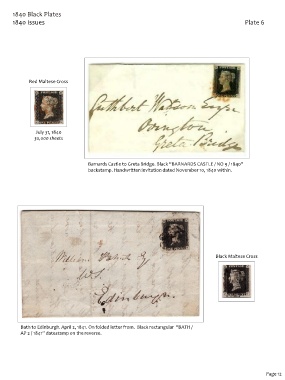 1840 Black Plates
1840 Issues
Plate 6
Red Maltese Cross
July 31, 1840
50,000 sheets
Cuthbert Watson Esqre
Ovington
Greta Bridge
Barnards Castle to Greta Bridge. Black "BARNARDS CASTLE / NO 9 / 1840"
backstamp. Handwritten invitation dated November 10, 1840 within.
William
Edinburgh
Black Maltese Cross
Bath to Edinburgh. April 2, 1841. On folded letter from. Black rectangular "BATH /
AP 2 / 1841" datestamp on the reverse.
Page 12